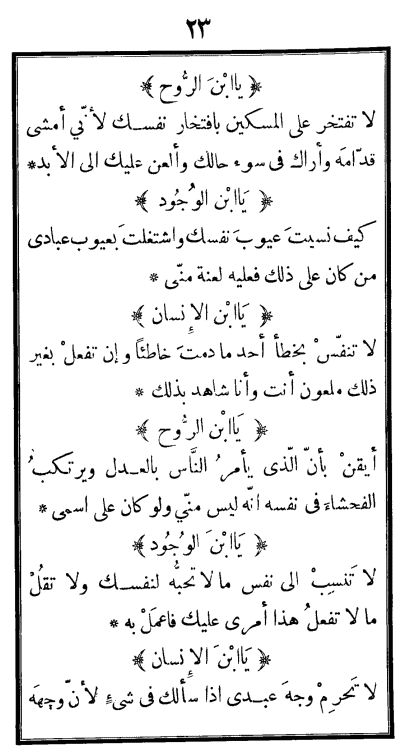 ٢٣
﴿ ياابْنَ الرُّوح ﴾
لا تفتخر على المسكين بافتخار نفسك لأنّي أمشى
قدّامَه وأراك فى سوء حالك وألعن عليك الى الأبد*
﴿ يَاابْن الوُجُود ﴾
كيف نسيتَ عيوبَ نفسك واشتغلتَ بعيوب عبادى
من كان على ذلك فعليه لعنة منّى *
﴿ يَاابْن الإنسان ﴾
لا تنفّسْ بخطأ أحد ما دمتَ خاطئاً و إن تفعلْ بغير
ذلك ملعون أنت وأنا شاهد بذلك *
﴿ يَاابْن الرُّوح ﴾
أيقنْ بأنّ الّذى يأمرُ النَّاس بالعدل ويرتكبُ
الفحشاءَ فى نفسه انّه ليس منّي ولو كان على اسمى *
﴿ يَاابْنَ الوُجُود ﴾
لا تَنسِبْ الى نفس ما لا تحبُّه لنفسك ولا تقلُ
ما لا تفعلُ هذا أمرى عليك فاعمَلْ به *
﴿ يَاابْنَ الإنسان ﴾
لا تَحرِمْ وجهَ عبدى اذا سألك فى شىءٍ لأنّ وجهَه